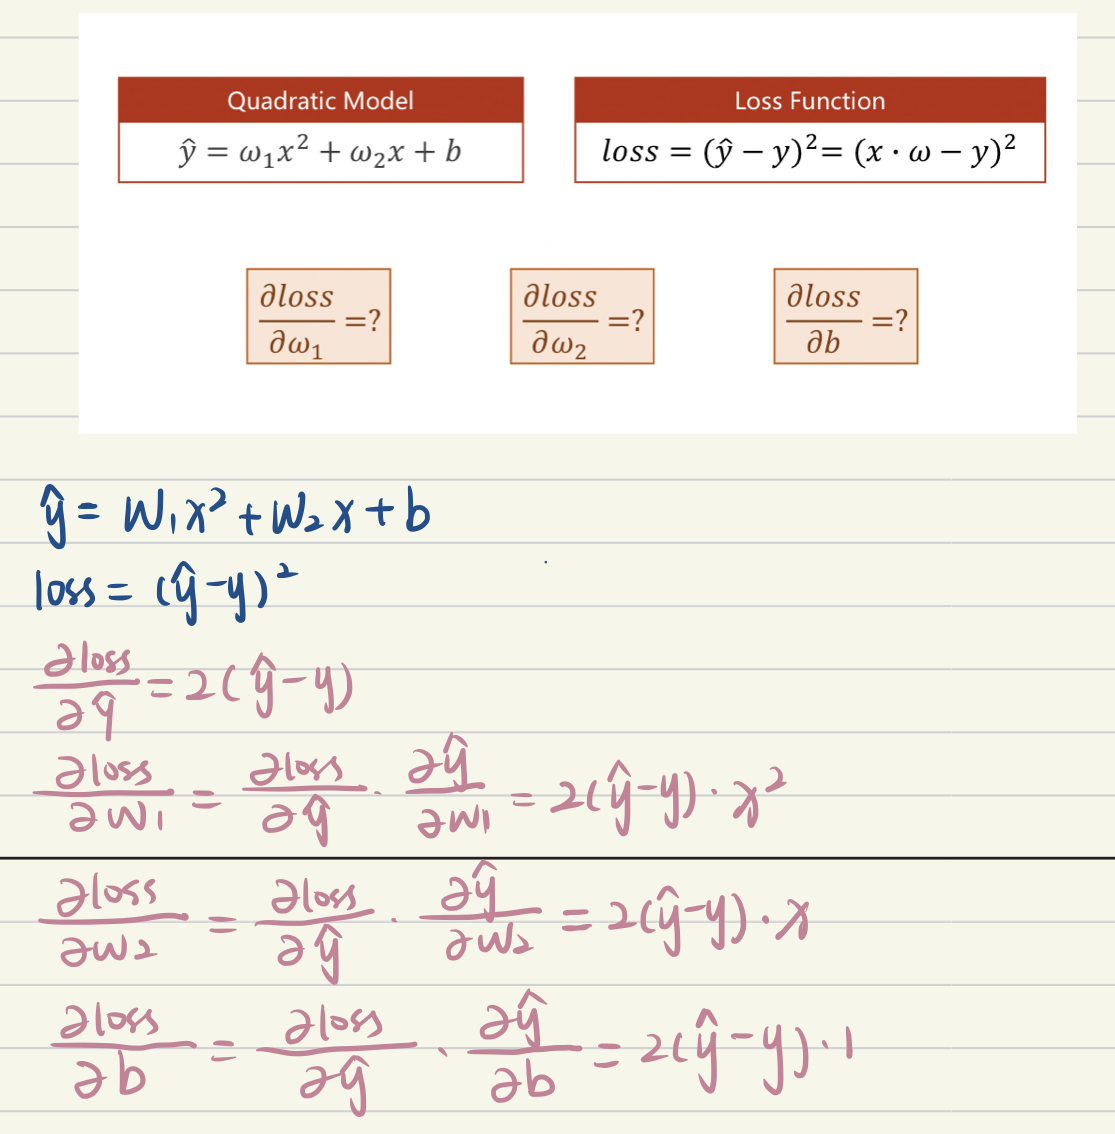 Quadratic Model
ŷ = ω₁x² + ω₂x + b
Loss Function
loss = (ŷ − y)²= (x · ω − y)²
∂loss/∂ω₁ =?
∂loss/∂ω₂ =?
∂loss/∂b =?
ŷ = W₁x² + W₂x + b
loss = (ŷ-y)²
∂loss/∂ŷ = 2(ŷ-y)
∂loss/∂W₁ = ∂loss/∂ŷ · ∂ŷ/∂W₁ = 2(ŷ-y)·x²
∂loss/∂W₂ = ∂loss/∂ŷ · ∂ŷ/∂W₂ = 2(ŷ-y)·x
∂loss/∂b = ∂loss/∂ŷ · ∂ŷ/∂b = 2(ŷ-y)·1